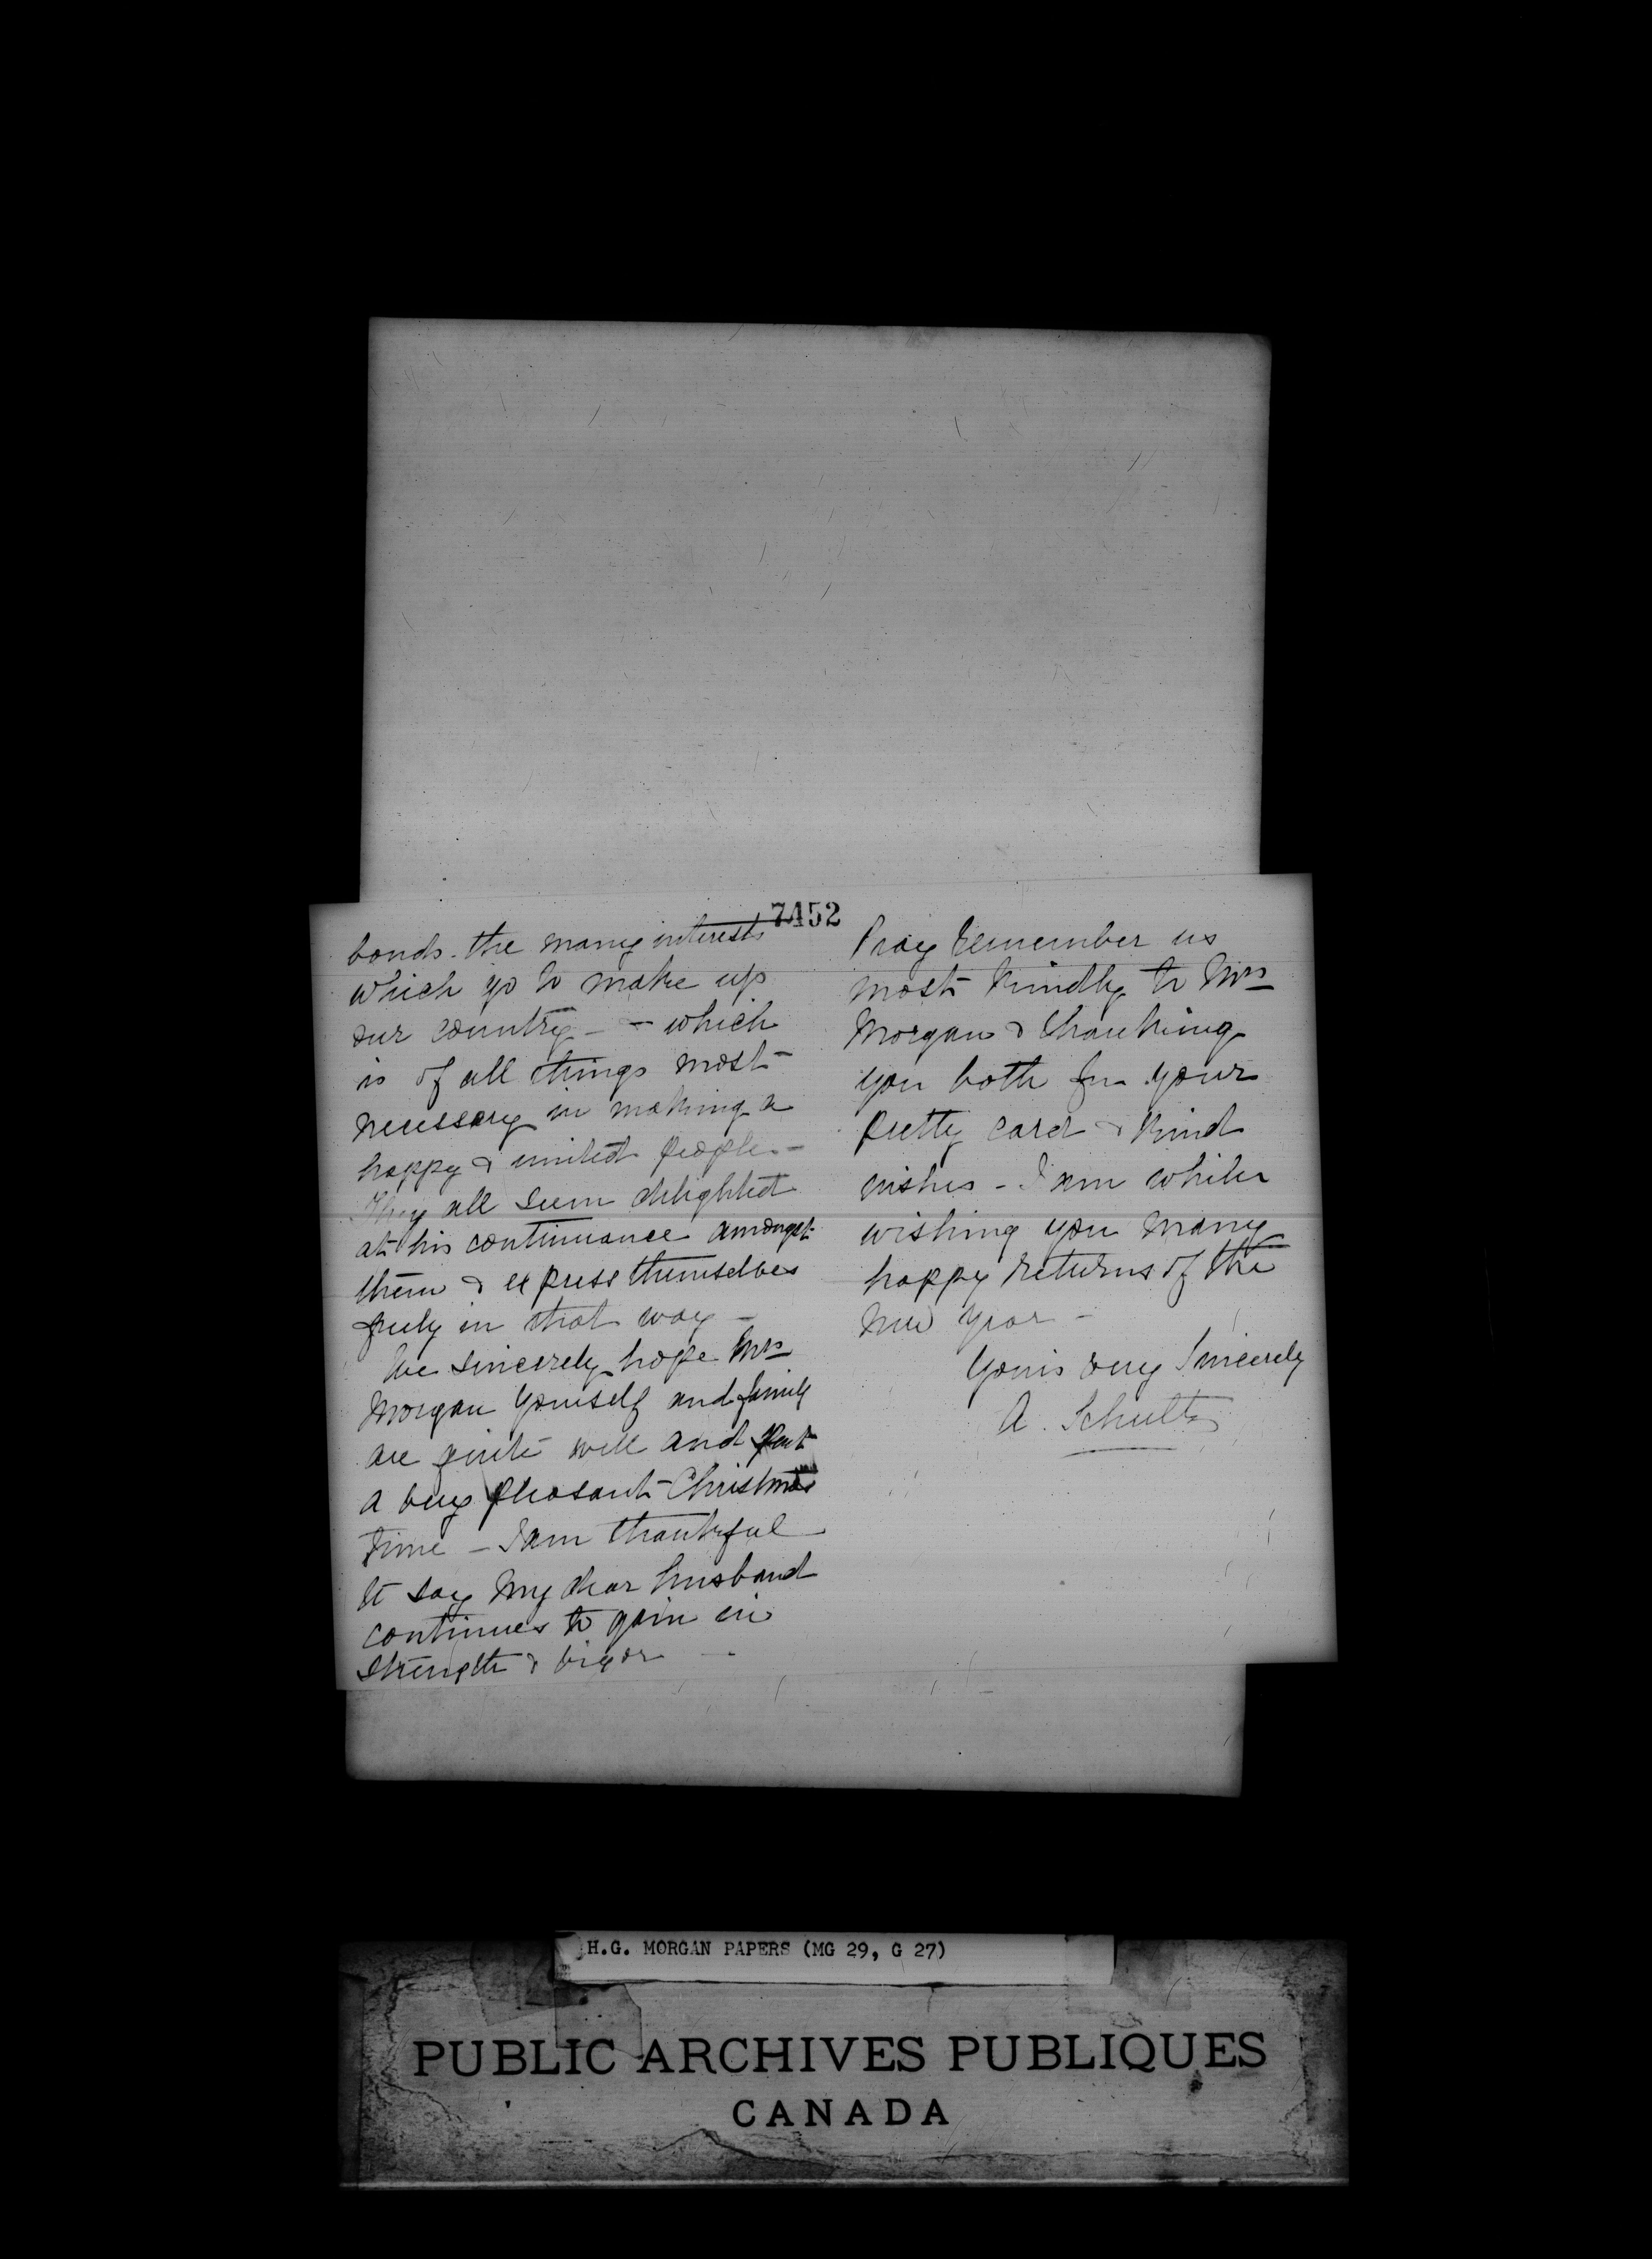 7452
bonds. the many interests
which go to make up
our country - - which
is of all things most
necessary in making a
happy & united people -
They all seem delighted
at his continuance amongst
them & express themselves
freely in that way -
We sincerely hope Mrs
Morgan yourself and family
are quite well and spent
a very pleasant Christmas
time - I am thankful
to say my dear husband
continues to gain in
strength & vigor -
Pray remember us
most kindly to Mrs
Morgan & thanking
you both for your
pretty card & kind
wishes - I am while
wishing you many
happy returns of the
new year -
Yours very Sincerely
A. Schultz
H.G. MORGAN PAPERS (MG 29, G 27)
PUBLIC ARCHIVES PUBLIQUES
CANADA